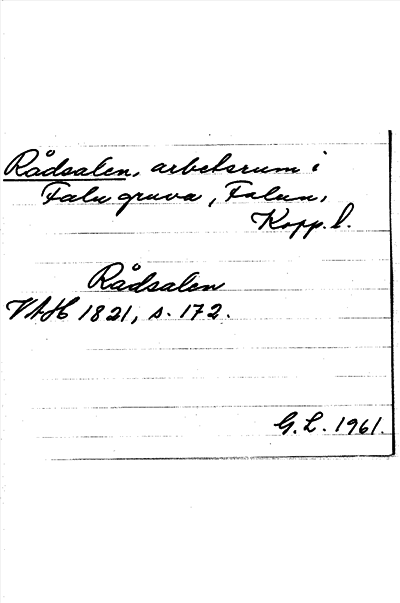 Rådsalen, arbetsrum i
Falu gruva, Falun,
Kopp. l.
Rådsalen
VAH 1821, s. 172.
G. L. 1961.